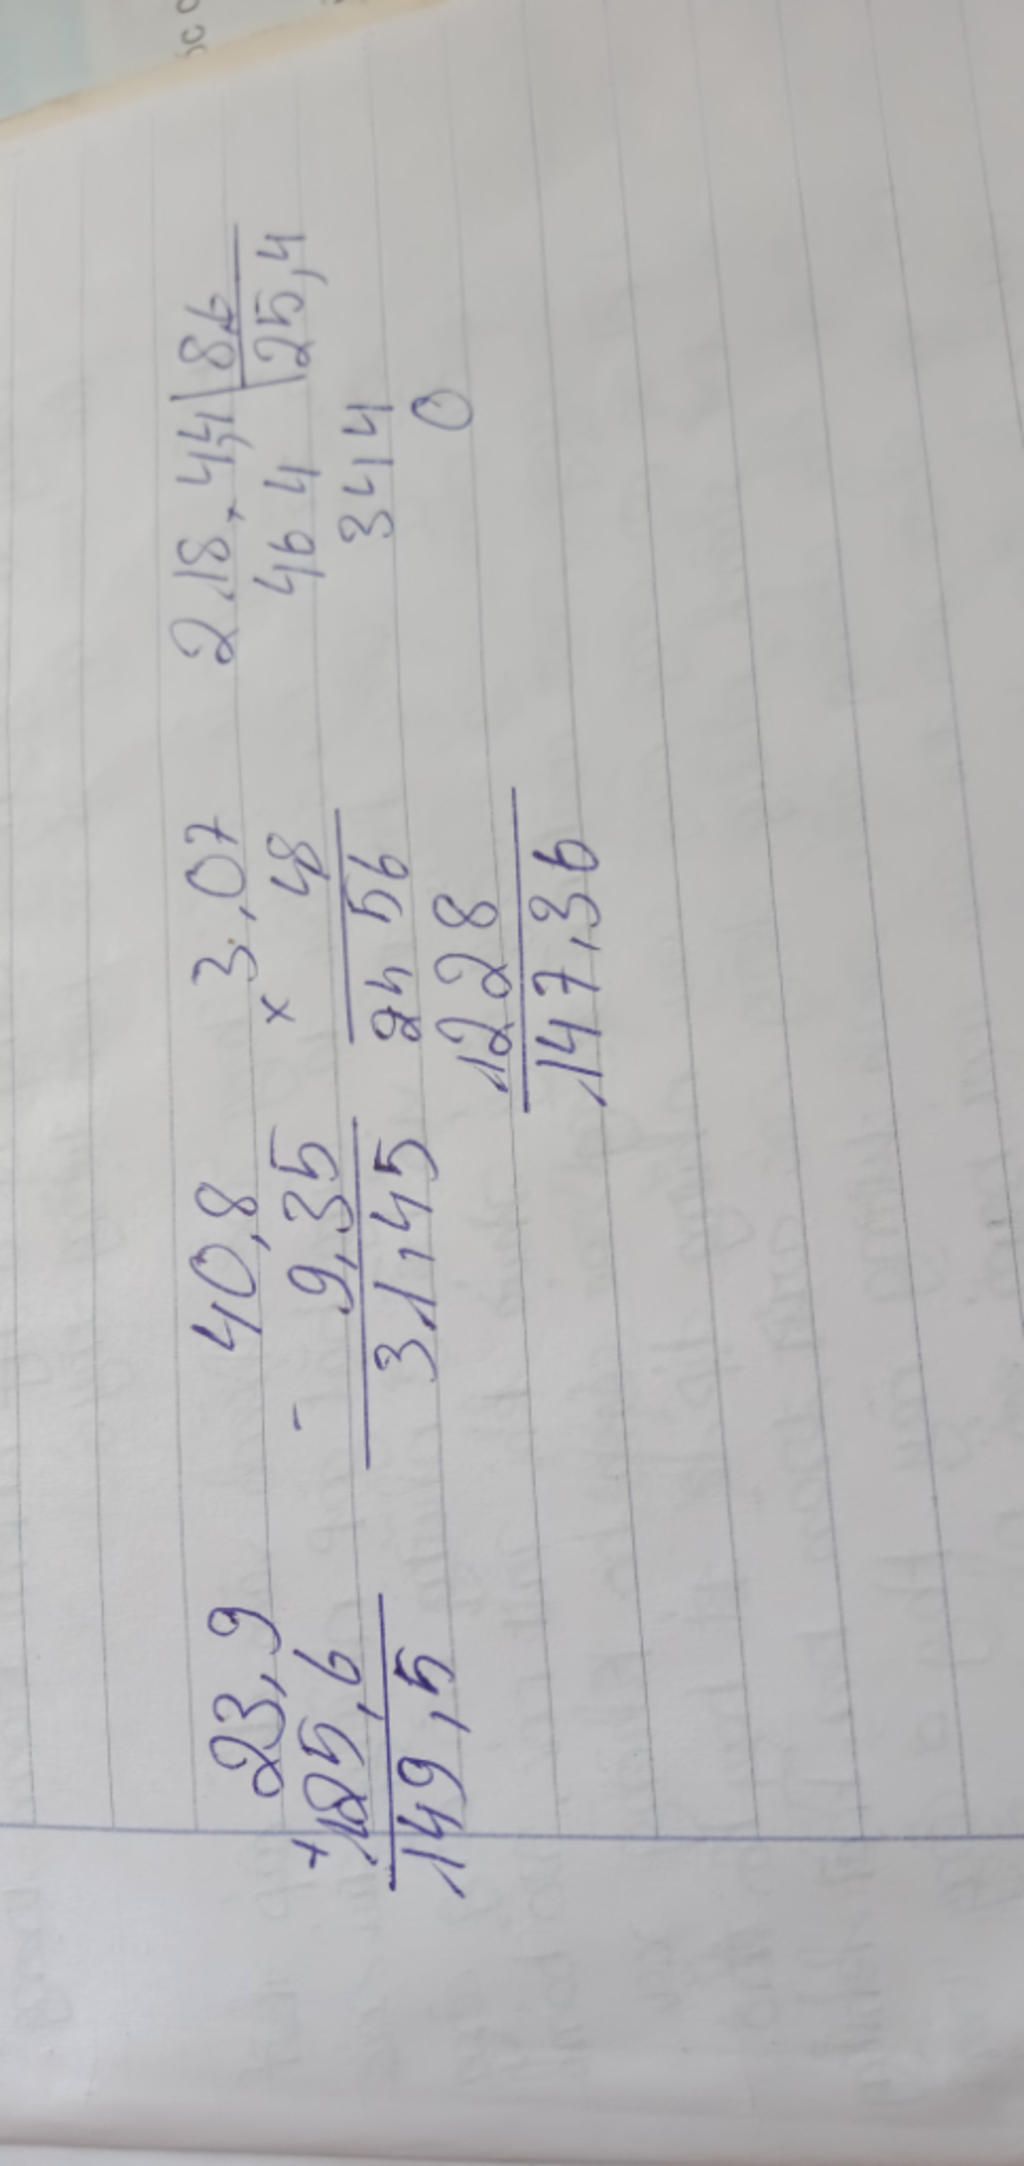 23,9
+ 125,6
149,5
40,8
- 9,35
31,45
3,07
x 48
24 56
1228
147,36
218,44 | 8,6
46 4 | 25,4
3 44
0